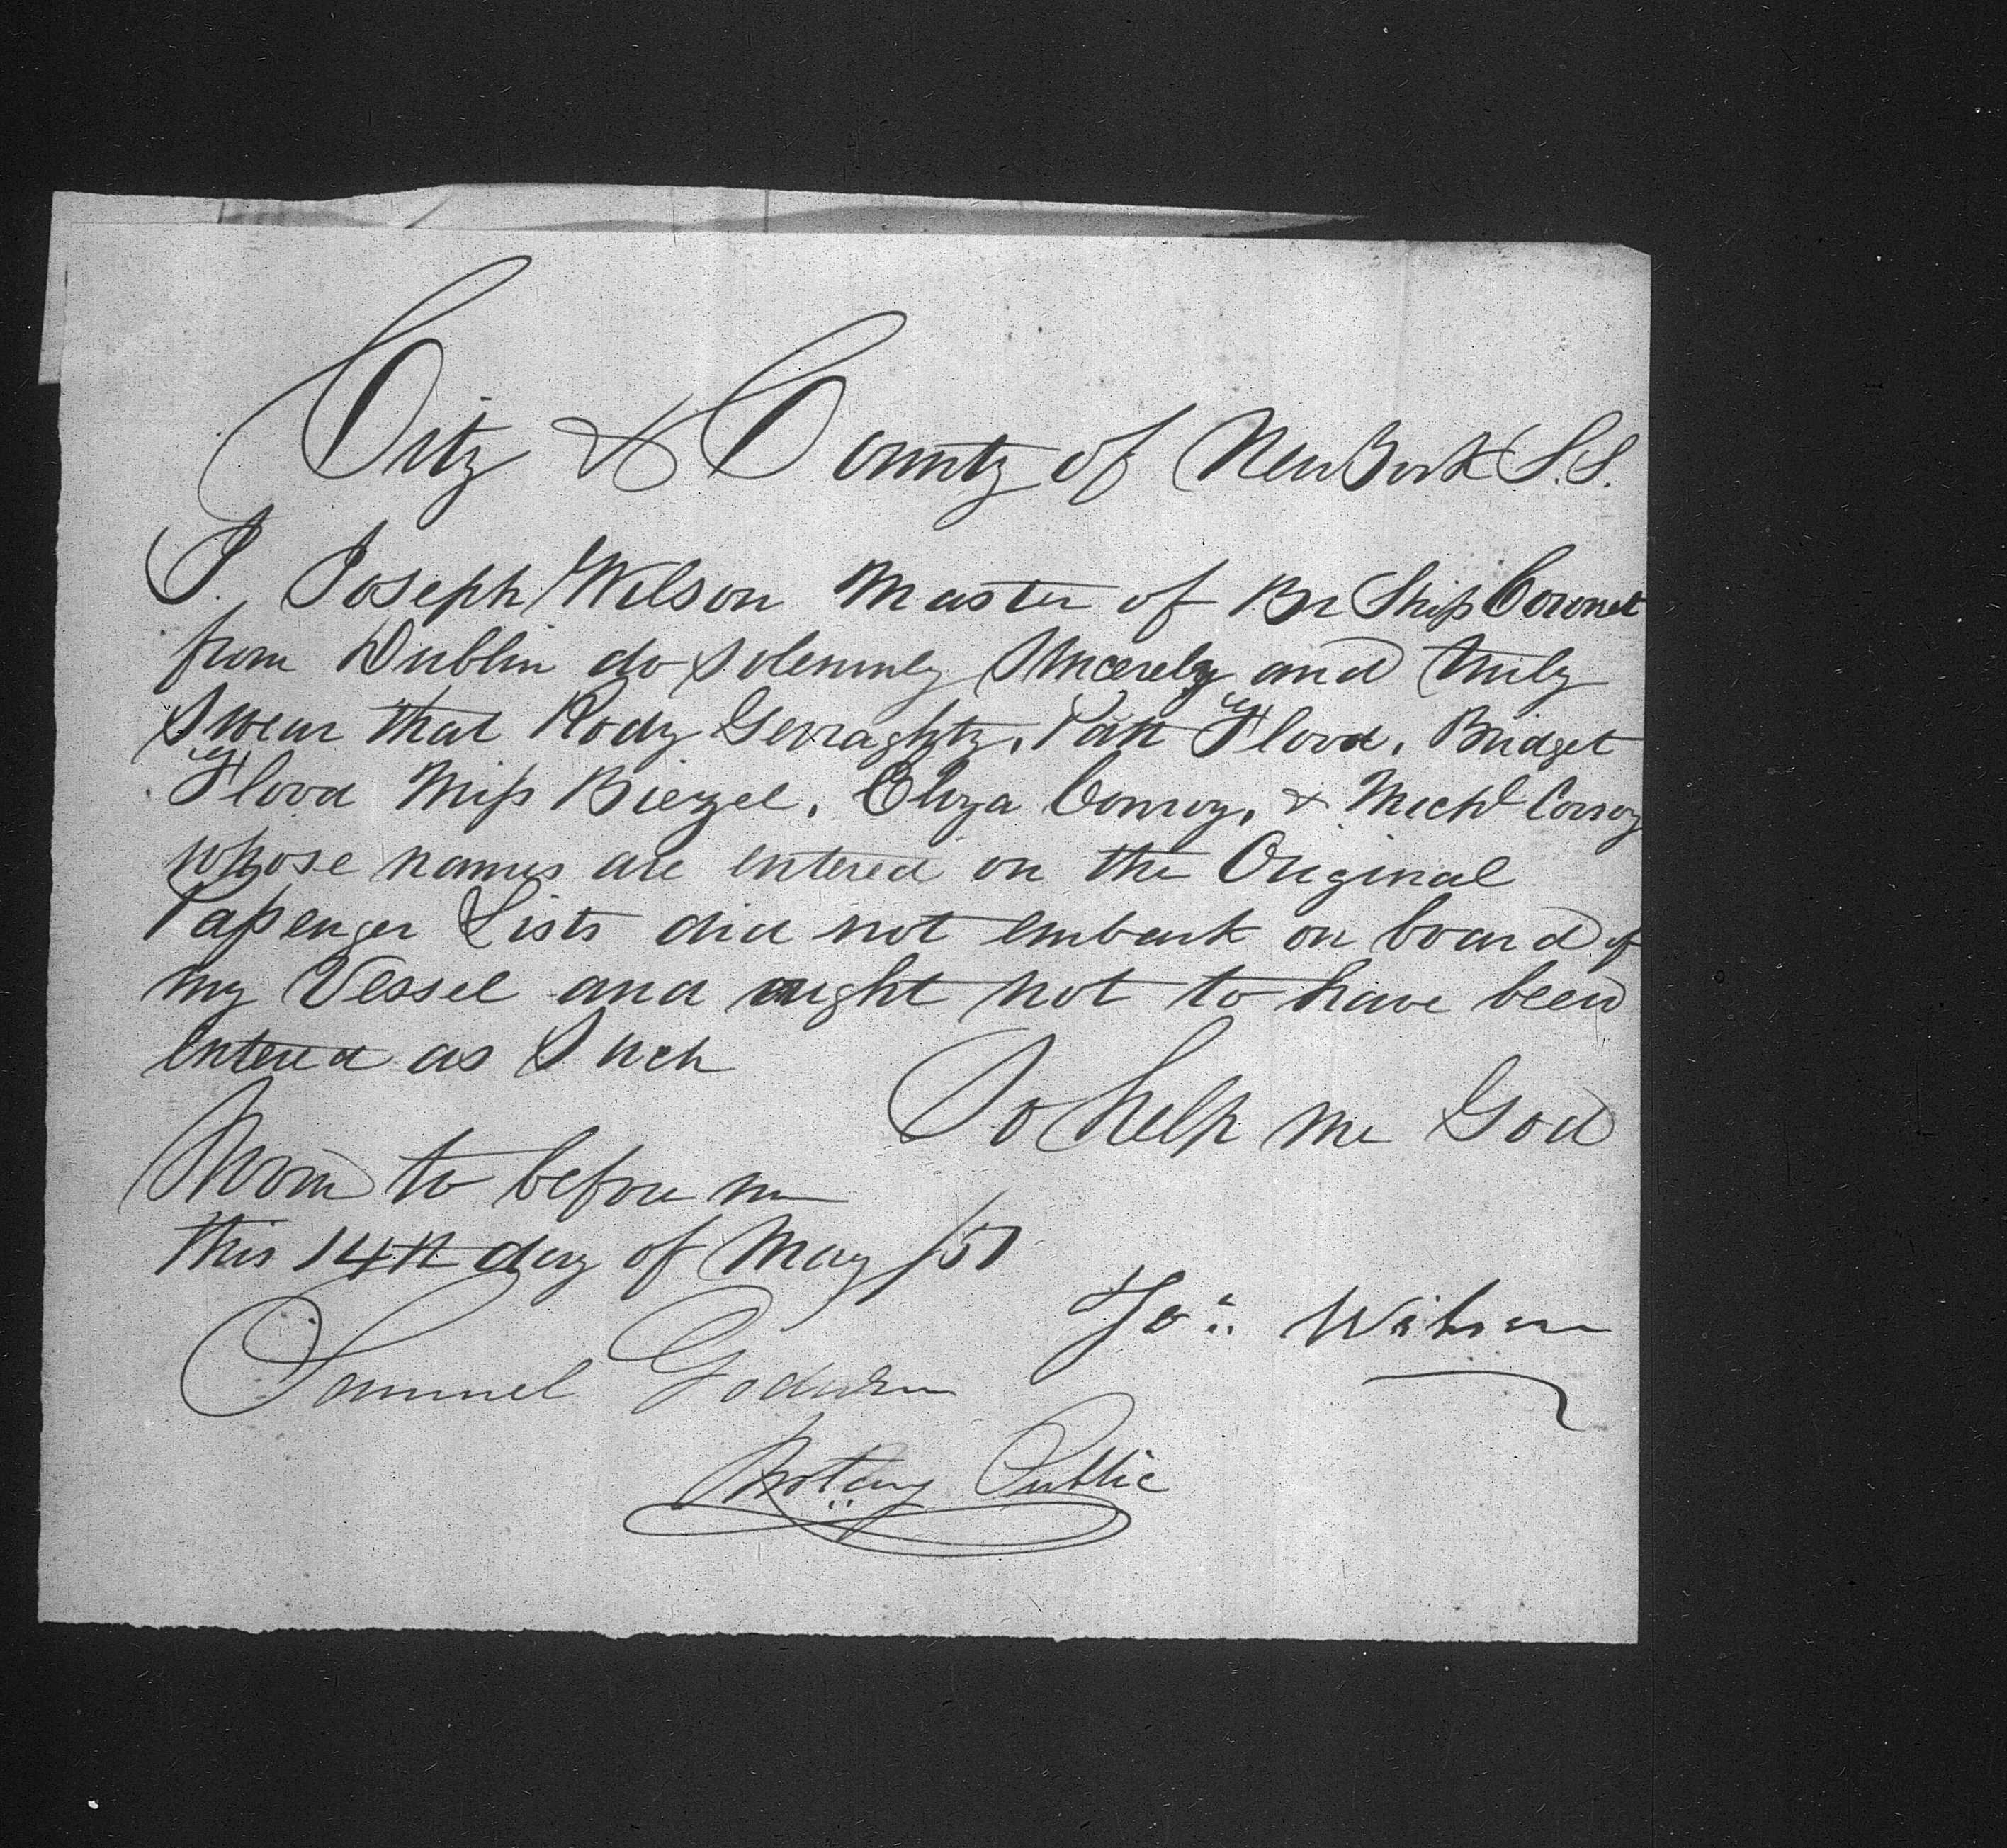 City & County of New York S.S.
I. Joseph Wilson Master of Br Ship Coronet
from Dublin do solemnly Sincerely and truly
Swear that Rody Gerraghty, Patt Flood, Bridget
Flood Miss Biezel, Eliza Conroy, & Michl Conroy
whose names are entered on the Original
Passenger Lists did not embark on board of
my Vessel and ought not to have been
entered as Such
So help me God
Sworn to before me
this 14th day of May /51
Jos: Wilson
Samuel
Notary Public